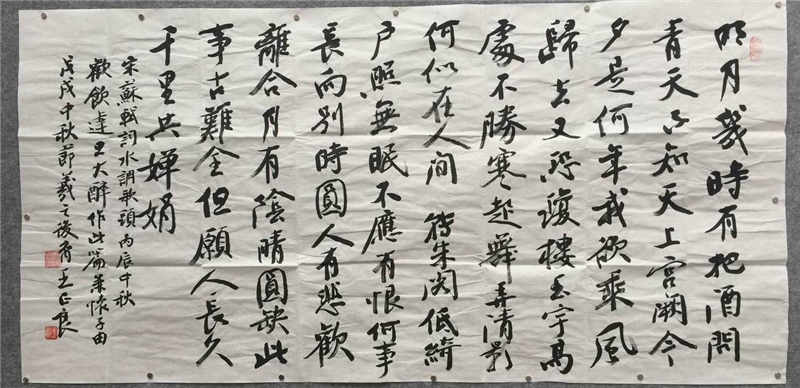 明月幾時有把酒問
青天不知天上宮闕今
夕是何年我欲乘風
歸去又恐瓊樓玉宇高
處不勝寒起舞弄清影
何似在人間轉朱閣低綺
户照無眠不應有恨何事
長向别時圓人有悲歡
離合月有陰晴圓缺此
事古難全但願人長久
千里共嬋娟
宋蘇軾詞水調歌頭丙辰中秋
歡飲達旦大醉作此篇兼懷子由
戊戌中秋節羲之後裔王正良